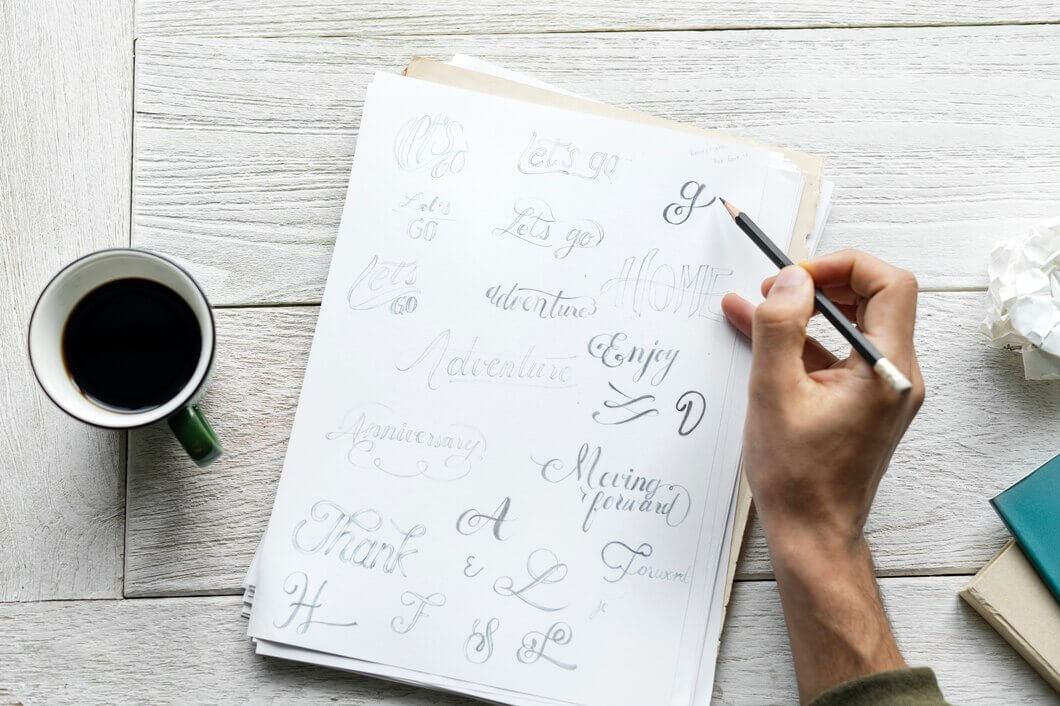 Let's go
Let's go
g
Let's
GO
Let's go
Let's
GO
adventure
HOME
Enjoy
Adventure
D
Anniversary
Moving
forward
Thank
A
Forward
H
F
L
S
L